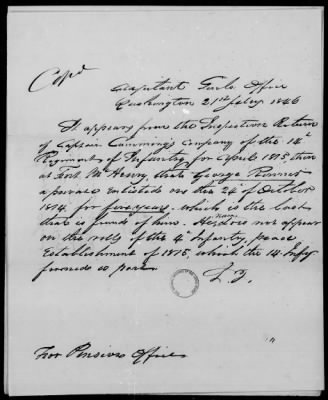 Cop'd
Adjutant Genl's Office
Washington 21st July 1846
It appears from the Inspection Return
of Captain Cumming's Company of the 14th
Regiment of Infantry, for April 1815, then
at Fort McHenry, that George
a private enlisted on the 24th of October
1814, for five years, which is the last
that is found of him. His name does not appear
on the rolls of the 4th Infantry, peace
Establishment of 1815, which the 14 Infy
formed a part.
L. T.
For Pension Office